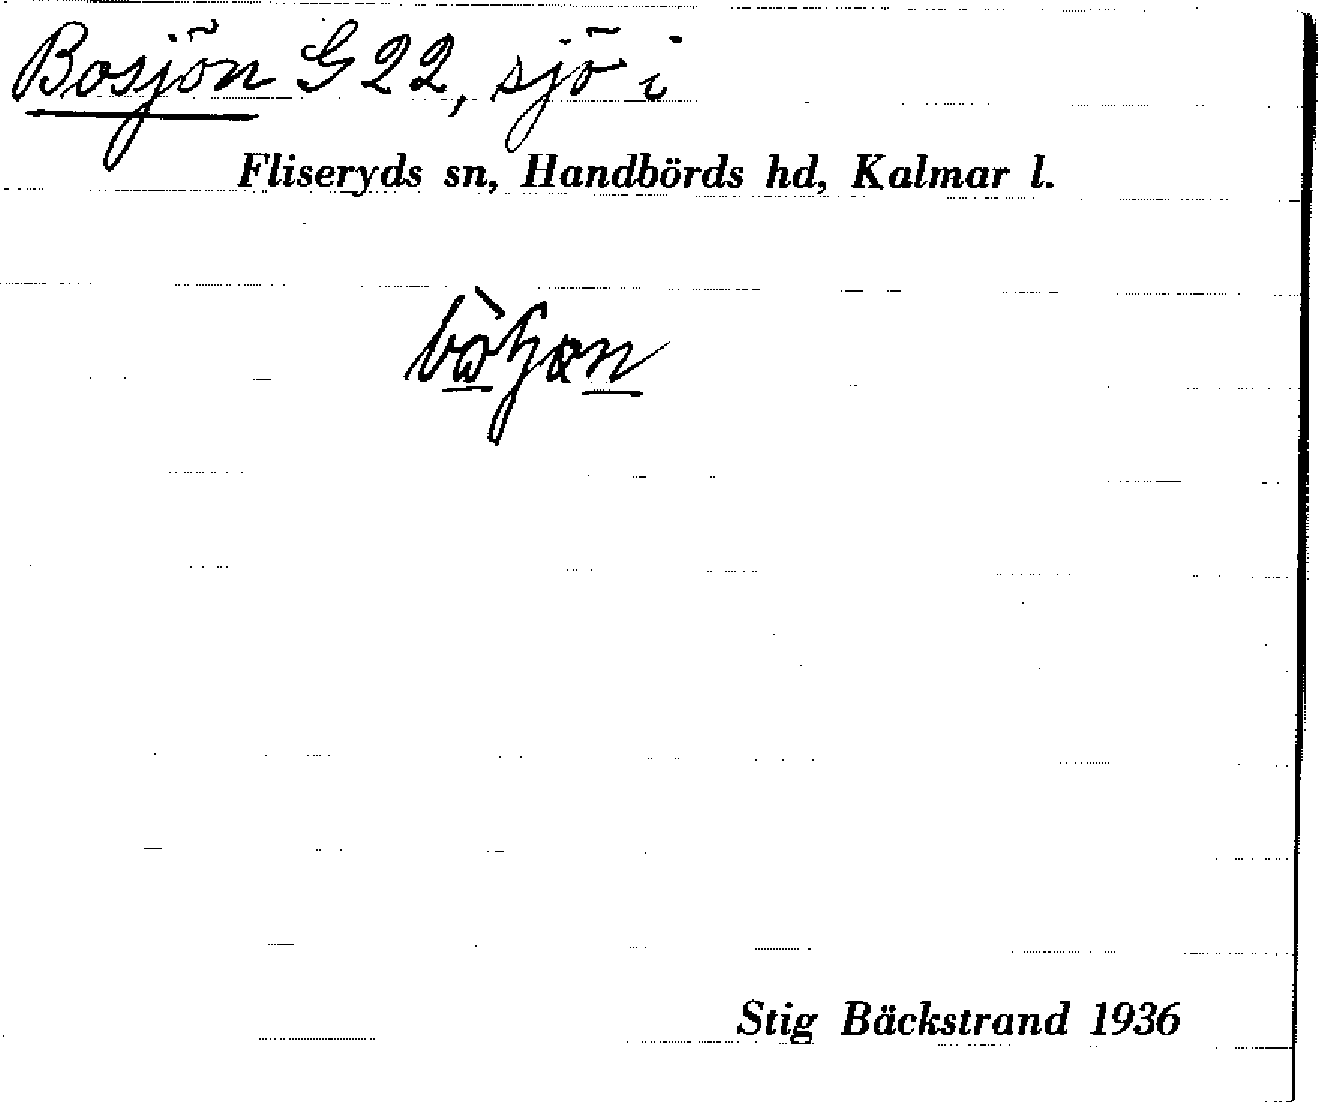 Bosjön G 22, sjö i
Fliseryds sn, Handbörds hd, Kalmar l.
Stig Bäckstrand 1936